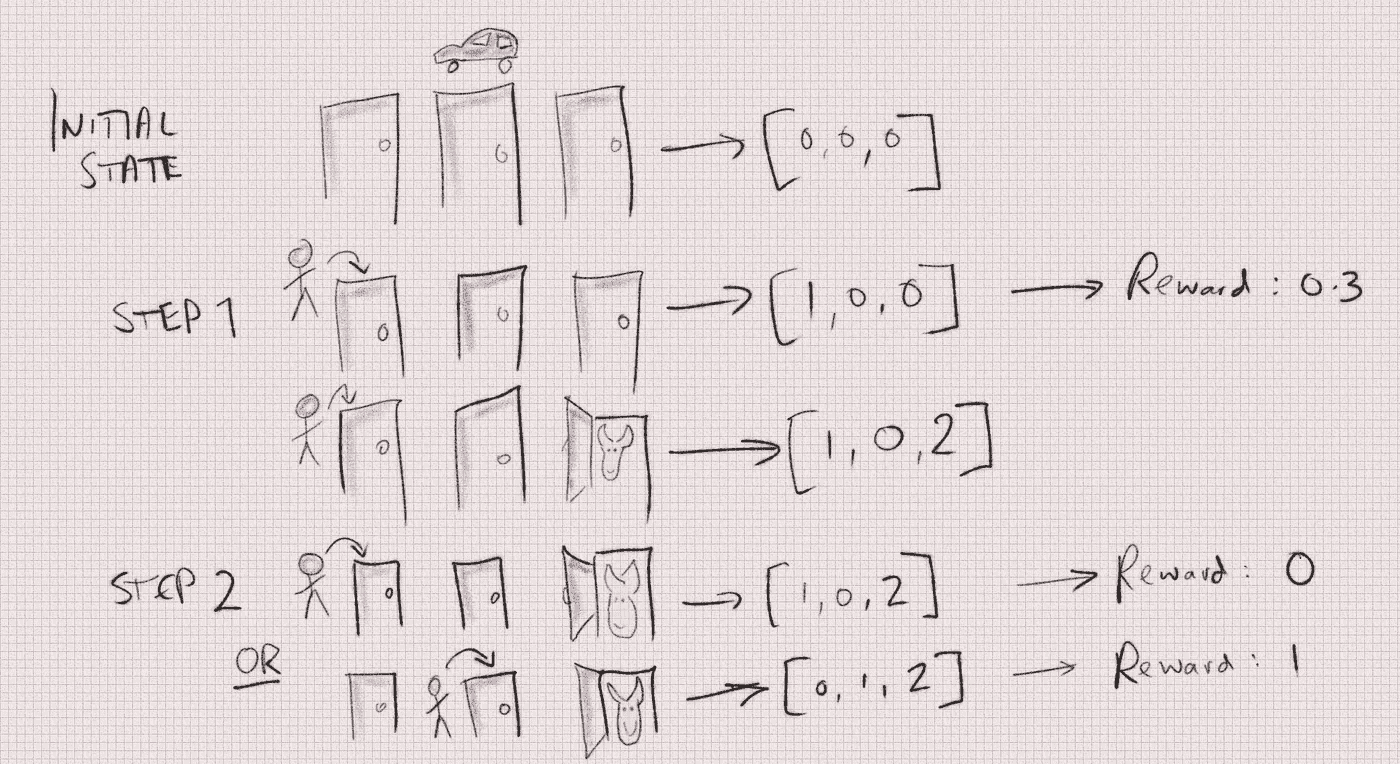 INITIAL
STATE
[0,0,0]
STEP 1
[1,0,0]
Reward : 0.3
[1,0,2]
STEP 2
[1,0,2]
Reward : 0
OR
[0,1,2]
Reward : 1